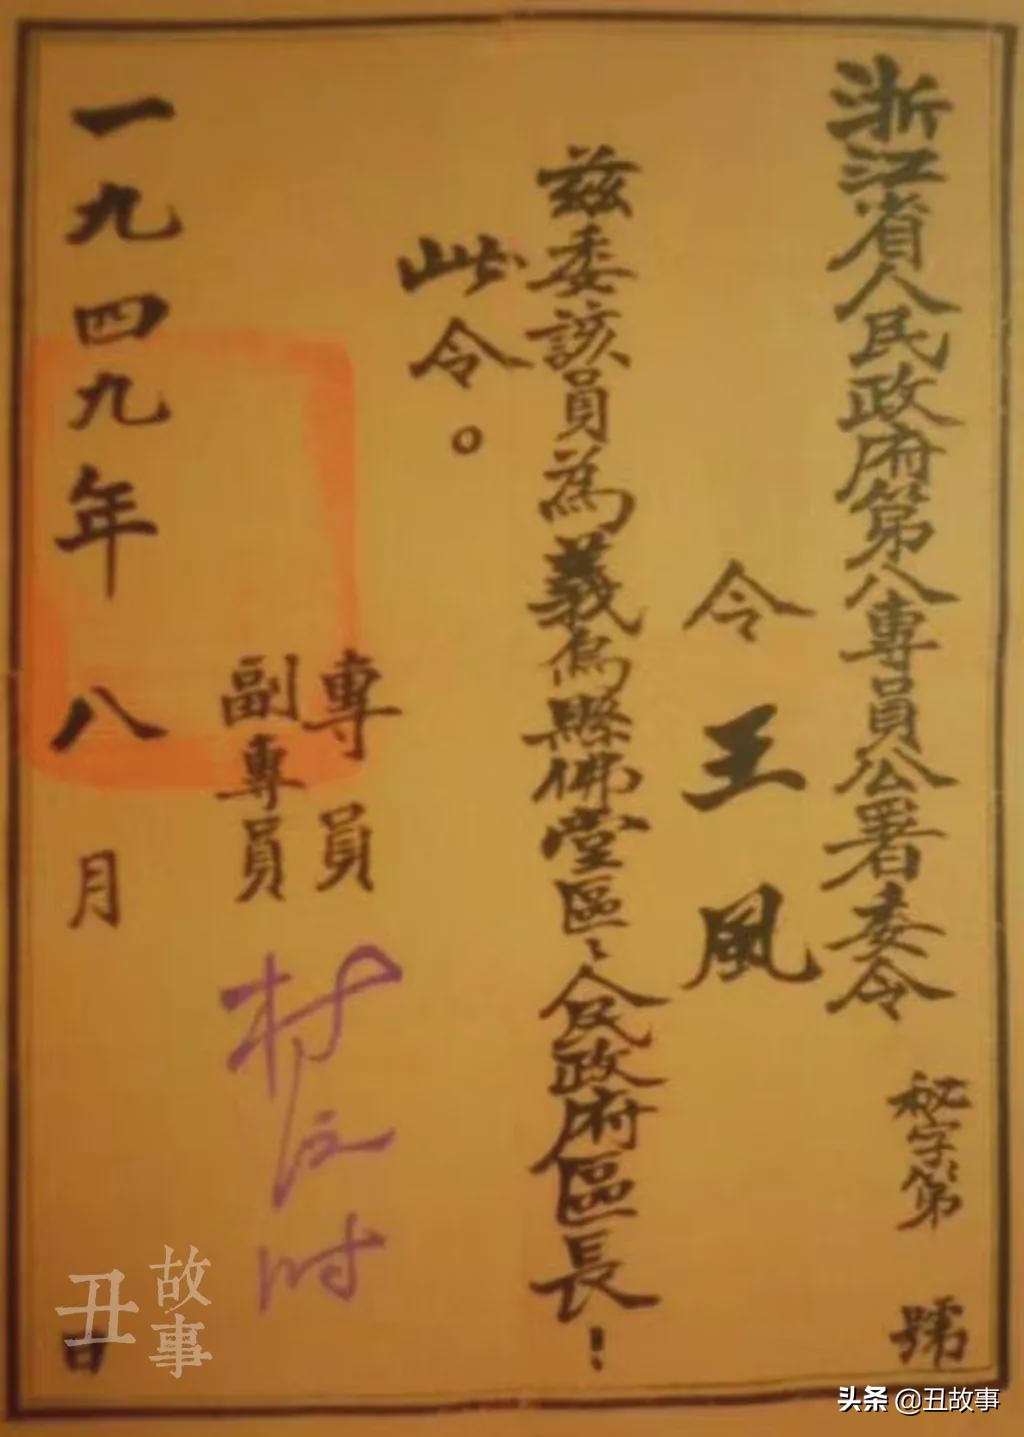 浙江省人民政府第八專員公署委令
秘字第 號
令王風
兹委該員為義烏縣佛堂區、人民政府區長！
此令。
專員
副專員
一九四九年八月 日
丑故事
头条 @丑故事